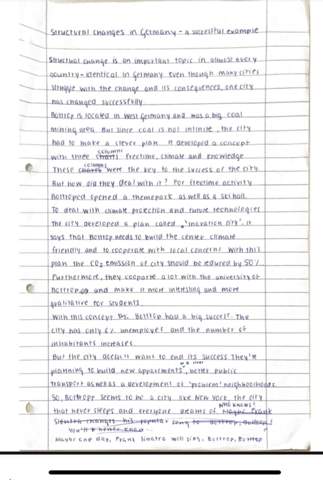 Structural changes in Germany - a successful example
Structural change is an important topic in almost every
country - identical in Germany. Even though many cities
struggle with the change and its consequences, one city
has changed successfully.
Bottrop is located in West Germany and was a big coal
mining area. But since coal is not infinite, the city
had to make a clever plan. It developed a concept
with three columns freetime, climate and knowledge
These columns were the key to the success of the city.
But how did they deal with it? For freetime activity
Bottrop opened a themepark as well as a ski hall.
To deal with climate protection and future technologies
the city developed a plan called "Inovation city". It
says that Bottrop needs to build the center climate
friendly and to cooperate with local concerns. With this
plan the CO2 emission of city should be reduced by 50%.
Furthermore, they cooporate a lot with the university of
Bottrop and make it more interesting and more
qualitative for students.
With this concept Bottrop had a big success. The
city has only 6% unemployed and the number of
inhabitants increases.
But the city doesn't want to end its success. They're
planning to build new appartments, better public
transport as well as a development of "problem" neighborhoods.
So, Bottrop seems to be a city like New York, the city
that never sleeps and everyone dreams of. Who knows?
Maybe one day, Frank Sinatra will sing, Bottrop, Bottrop